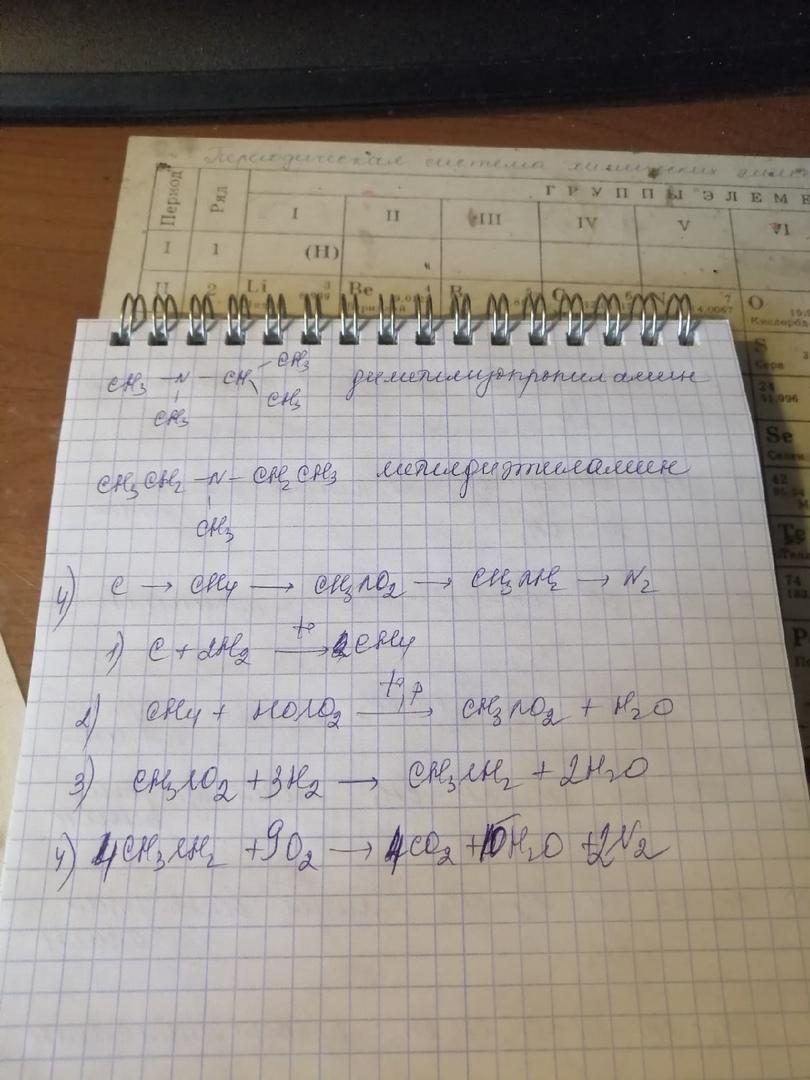 Периодическая система химических
ГРУППЫ ЭЛЕМЕ
Период Ряд I II III IV V VI
I 1 (H)
II 2 Li 3 Be 4 B 5 C 6 N 7 O
14.0067
Кислород
S
Сера
24
51,996
Se
Селен
42
Te
74
CH3 — N — CH CH3
CH3 CH3 диметилизопропиламин
CH3CH2 — N — CH2CH3 метилдиэтиламин
CH3
4) C → CH4 → CH3NO2 → CH3NH2 → N2
1) C + 2H2 →t° CH4
2) CH4 + HONO2 →t°,p CH3NO2 + H2O
3) CH3NO2 + 3H2 → CH3NH2 + 2H2O
4) 4CH3NH2 + 9O2 → 4CO2 + 10H2O + 2N2